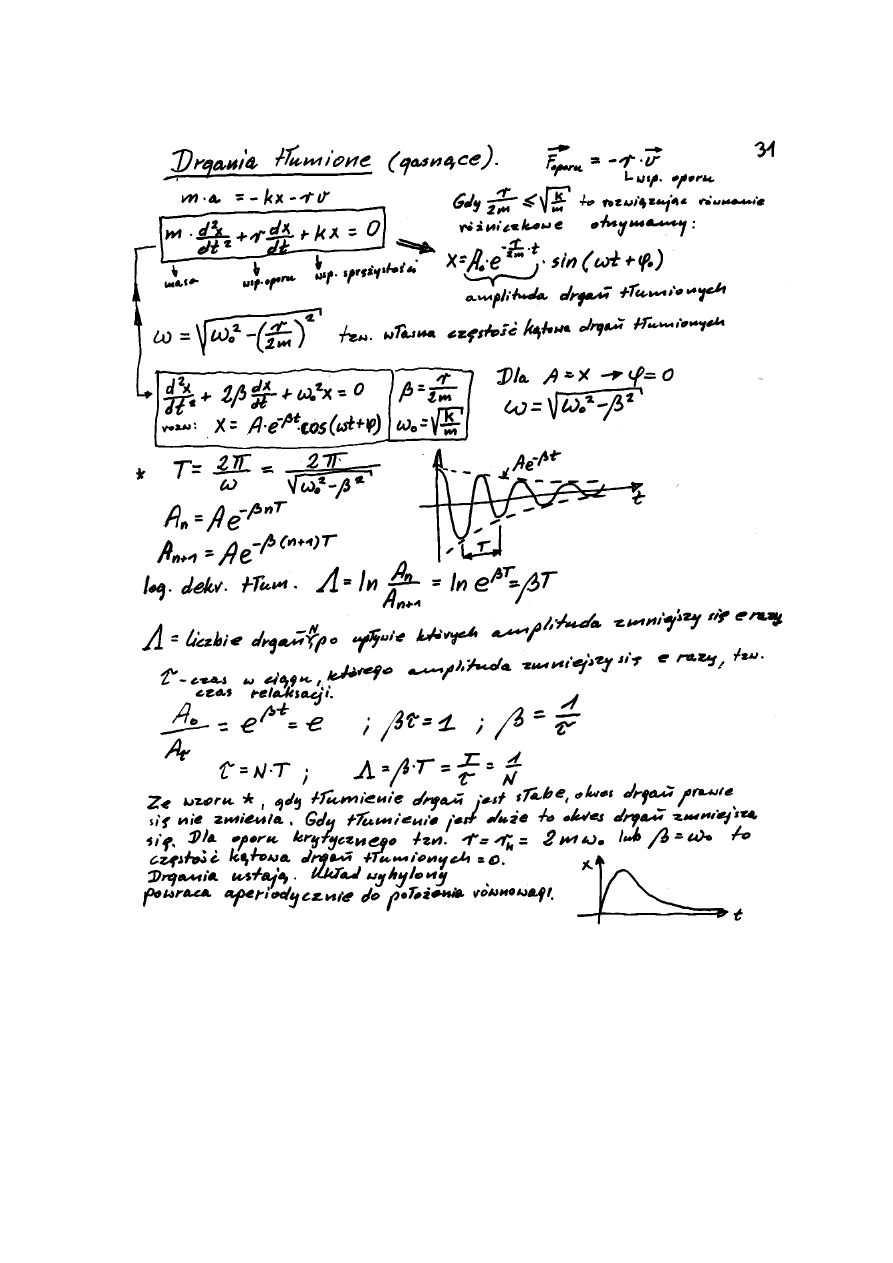 31
Drgania tłumione (gasnące).
F⃗oporu = -r·v⃗
wsp. oporu
m·a = -kx - rv
Gdy r/2m ≤ √(k/m) to rozwiązując równanie
różniczkowe otrzymamy:
m·d²x/dt² + r dx/dt + kx = 0
x = A₀·e^(-r/2m·t)·sin(ωt+φ₀)
masa wsp. oporu wsp. sprężystości
amplituda drgań tłumionych
ω = √(ω₀² - (r/2m)²) tzw. własna częstość kątowa drgań tłumionych
d²x/dt² + 2β dx/dt + ω₀²x = 0
rozw: x = A·e^(-βt)·cos(ωt+φ)
β = r/2m
ω₀ = √(k/m)
Dla A = x → φ = 0
ω = √(ω₀² - β²)
* T = 2π/ω = 2π/√(ω₀² - β²)
Ae^(-βt)
t
T
Aₙ = Ae^(-βnT)
Aₙ₊₁ = Ae^(-β(n+1)T)
log. dekr. tłum. Λ = ln Aₙ/Aₙ₊₁ = ln e^(βT) = βT
Λ = liczbie drgań N po upływie których amplituda zmniejszy się e razy
τ - czas w ciągu, którego amplituda zmniejszy się e razy, tzw.
czas relaksacji.
A₀/Aτ = e^(βt) = e ; βτ = 1 ; β = 1/τ
τ = N·T ; Λ = β·T = T/τ = 1/N
Ze wzoru *, gdy tłumienie drgań jest słabe, okres drgań prawie
się nie zmienia. Gdy tłumienie jest duże to okres drgań zmniejsza
się. Dla oporu krytycznego tzn. r = rₖ = 2mω₀ lub β = ω₀ to
częstość kątowa drgań tłumionych = 0.
Drgania ustają. Układ wyhylony
powraca aperiodycznie do położenia równowagi.
x
t